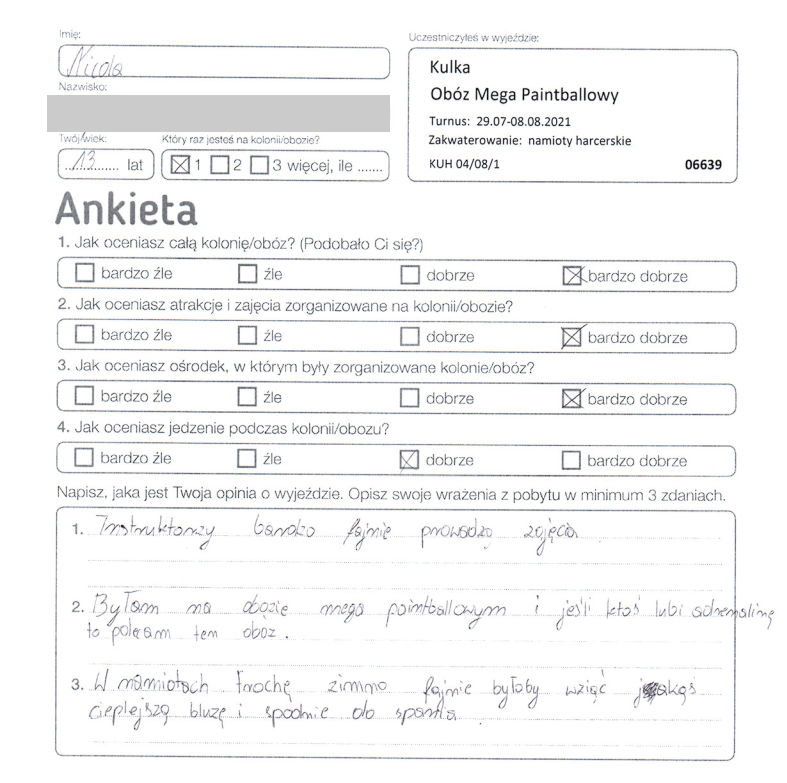 Imię:
Nicola
Nazwisko:
Twój wiek:
13 lat
Który raz jesteś na kolonii/obozie?
1 2 3 więcej, ile .......
Uczestniczyłeś w wyjeździe:
Kulka
Obóz Mega Paintballowy
Turnus: 29.07-08.08.2021
Zakwaterowanie: namioty harcerskie
KUH 04/08/1 06639
Ankieta
1. Jak oceniasz całą kolonię/obóz? (Podobało Ci się?)
bardzo źle źle dobrze bardzo dobrze
2. Jak oceniasz atrakcje i zajęcia zorganizowane na kolonii/obozie?
bardzo źle źle dobrze bardzo dobrze
3. Jak oceniasz ośrodek, w którym były zorganizowane kolonie/obóz?
bardzo źle źle dobrze bardzo dobrze
4. Jak oceniasz jedzenie podczas kolonii/obozu?
bardzo źle źle dobrze bardzo dobrze
Napisz, jaka jest Twoja opinia o wyjeździe. Opisz swoje wrażenia z pobytu w minimum 3 zdaniach.
1. Instruktorzy bardzo fajnie prowadzą zajęcia
2. Byłam na obozie mega paintballowym i jeśli ktoś lubi adrenalinę
to polecam ten obóz.
3. W namiotach trochę zimno fajnie byłoby wziąć jakąś
cieplejszą bluzę i spodnie do spania.